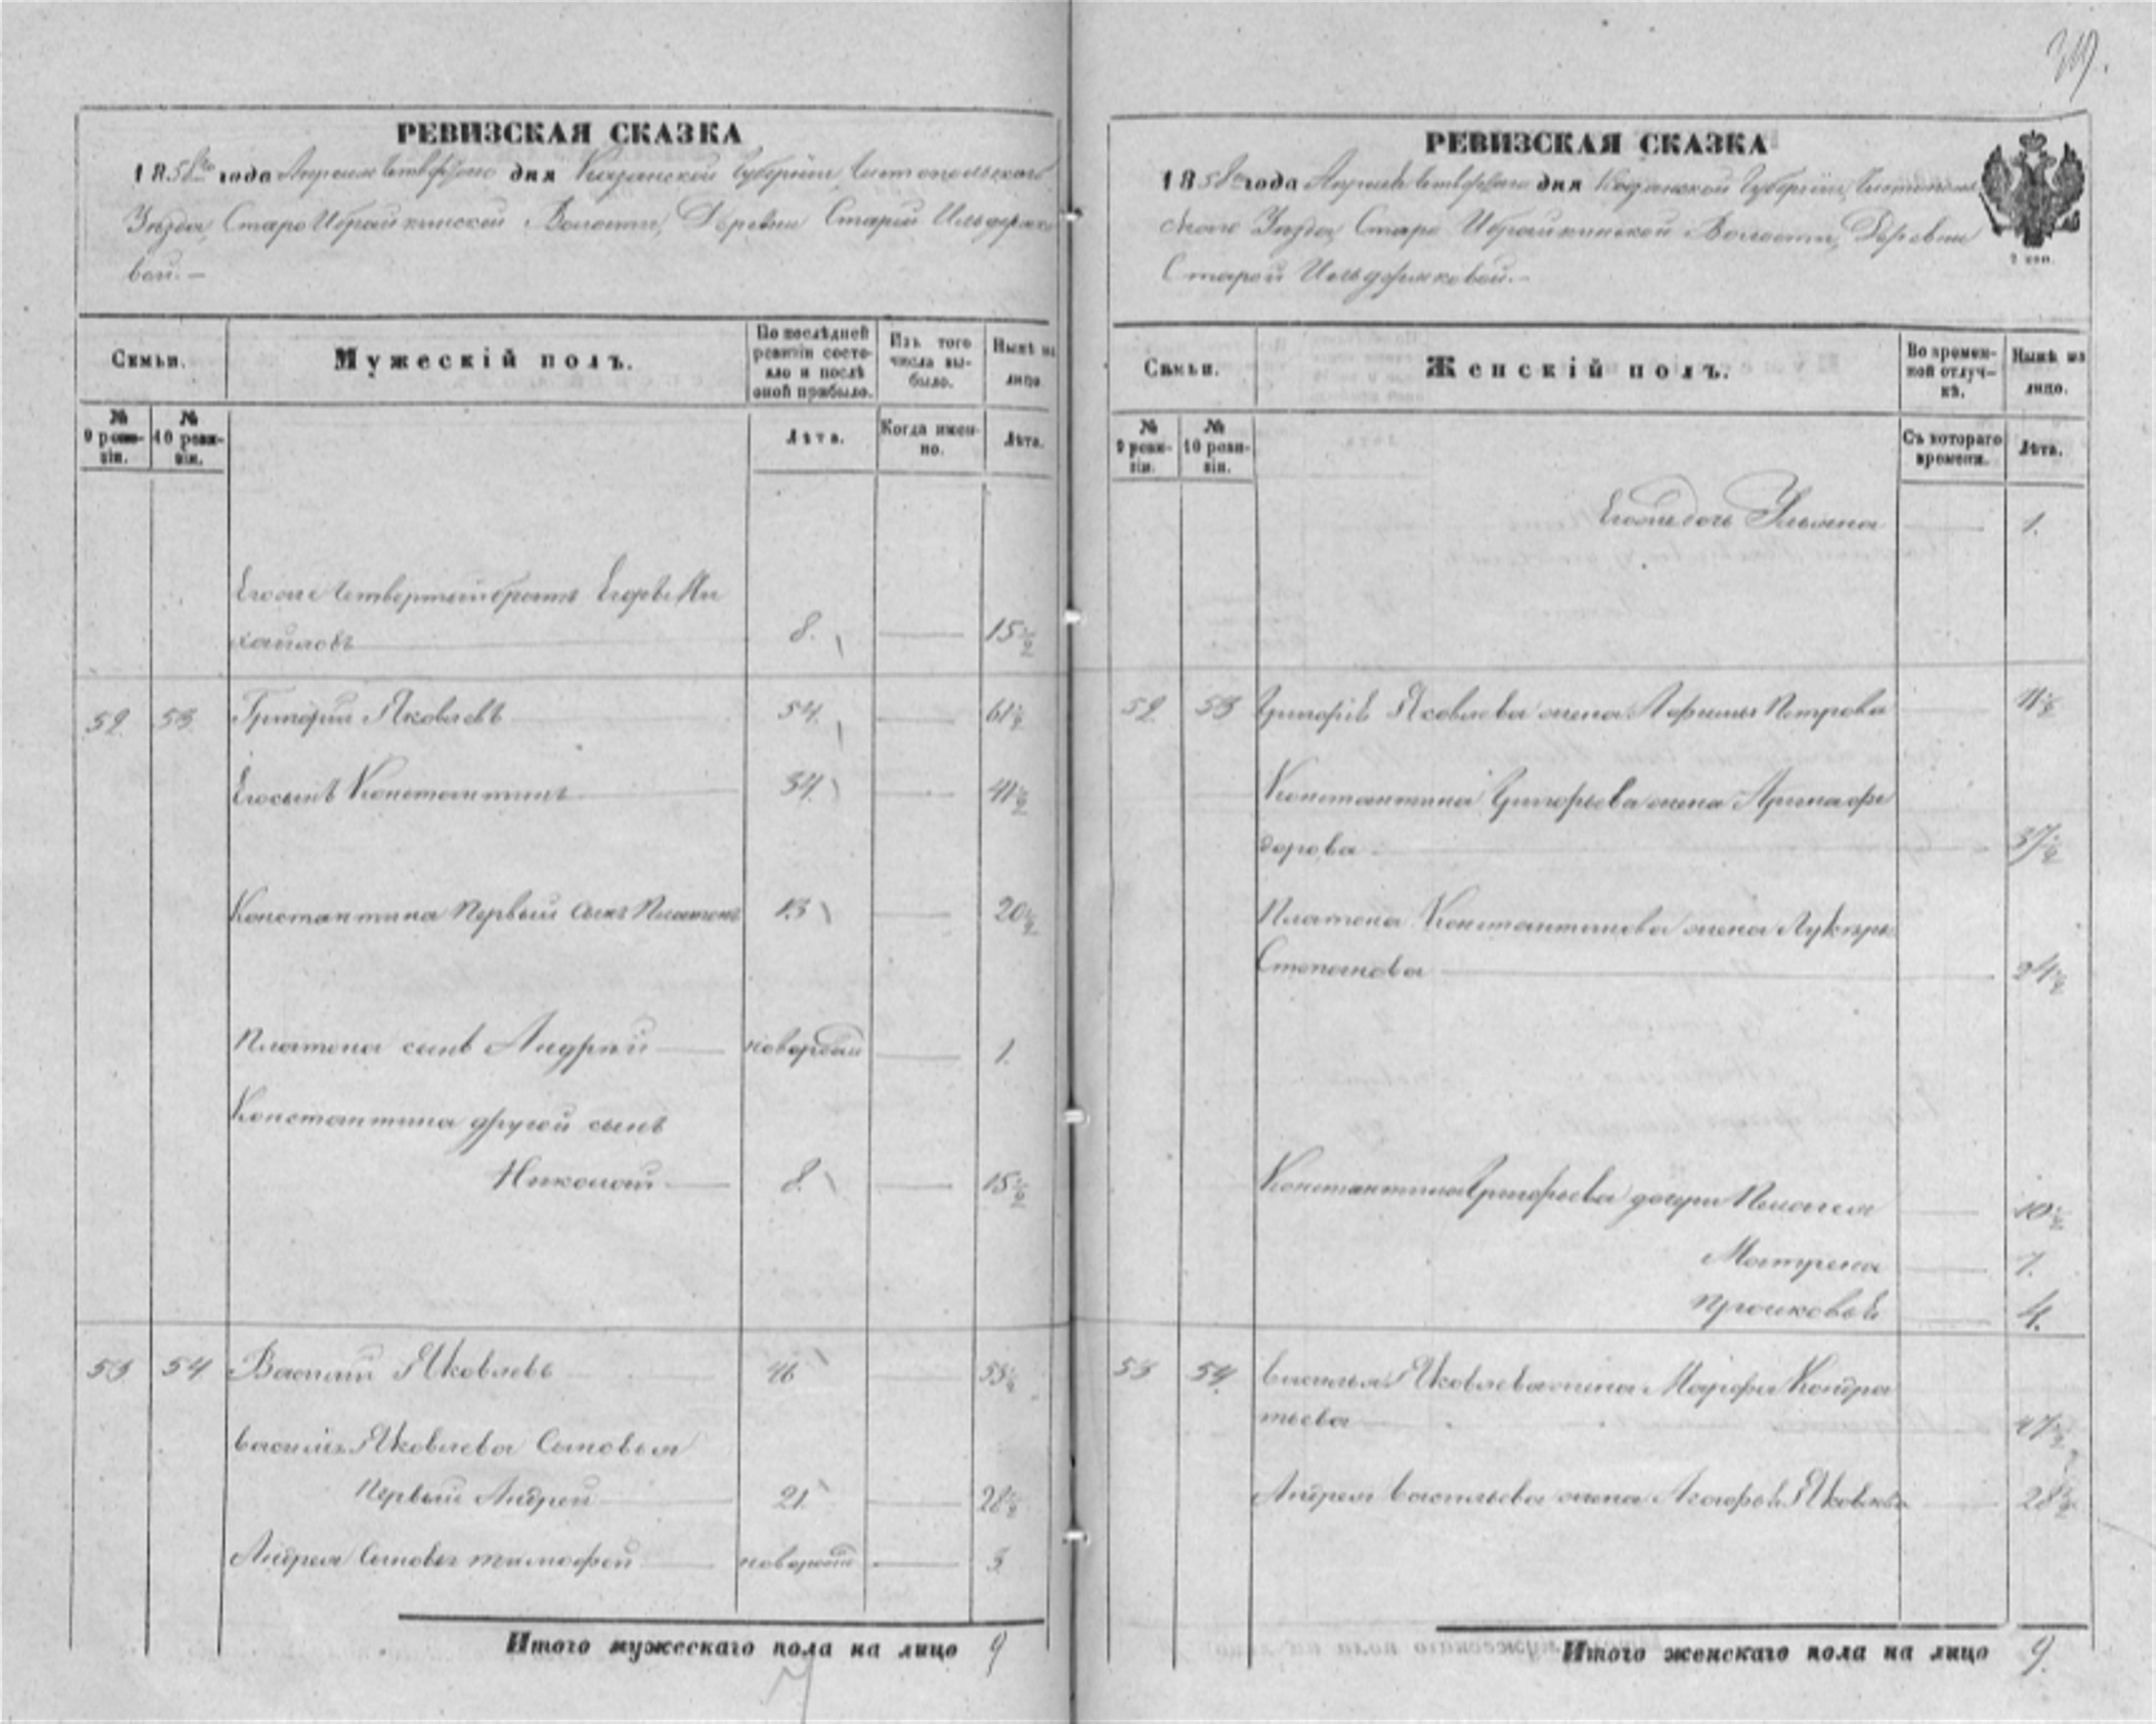 РЕВИЗСКАЯ СКАЗКА
1858го года Апреля дня Казанской Губернии, Чистопольскаго
Уезда, Старо Ибрайкинской Волости, Деревни Старой Ильдеряко
вой.—
Семьи.
Мужескій полъ.
По послѣдней ревизіи состояло и послѣ оной прибыло.
Изъ того числа выбыло.
Нынѣ на лицо.
№ 9 ревизіи.
№ 10 ревизіи.
Лѣта.
Когда именно.
Лѣта.
Его же четвертый братъ Егоръ Ми
хайловъ 8. 15½
52 53 Григорій Яковлевъ 54. 61½
Его сынъ Константинъ 34. 41½
Константина Первый сынъ Платонъ 13 20½
Платона сынъ Андрей 1.
Константина другой сынъ
Николай 8. 15½
53 54 Василій Яковлевъ 46 53½
Василья Яковлева Сыновья
Первый Андрей 21 28½
Андрея Тимофей 3
Итого мужескаго пола на лицо 9
РЕВИЗСКАЯ СКАЗКА
1858го года Апреля дня Казанской Губернии, Чистополь
скаго Уезда, Старо Ибрайкинской Волости, Деревни
Старой Ильдеряковой.—
2 коп.
Семьи.
Женскій полъ.
Во временной отлучкѣ.
Нынѣ на лицо.
№ 9 ревизіи.
№ 10 ревизіи.
Съ котораго времени.
Лѣта.
дочь Ульяна 1.
52 53 Григорія Яковлева жена Афимья Петрова
Константина Григорьева жена Арина Фе
дорова 37½
Платона Константинова жена Лукерья
Степанова 24½
Константина Григорьева дочери Пелагея 10½
Матрена 7.
Прасковья 4.
53 54 Василья Яковлева жена Марфа Кондра
тьева 47½
Андрея Васильева жена Агафья Яковлева 28½
Итого женскаго пола на лицо 9.